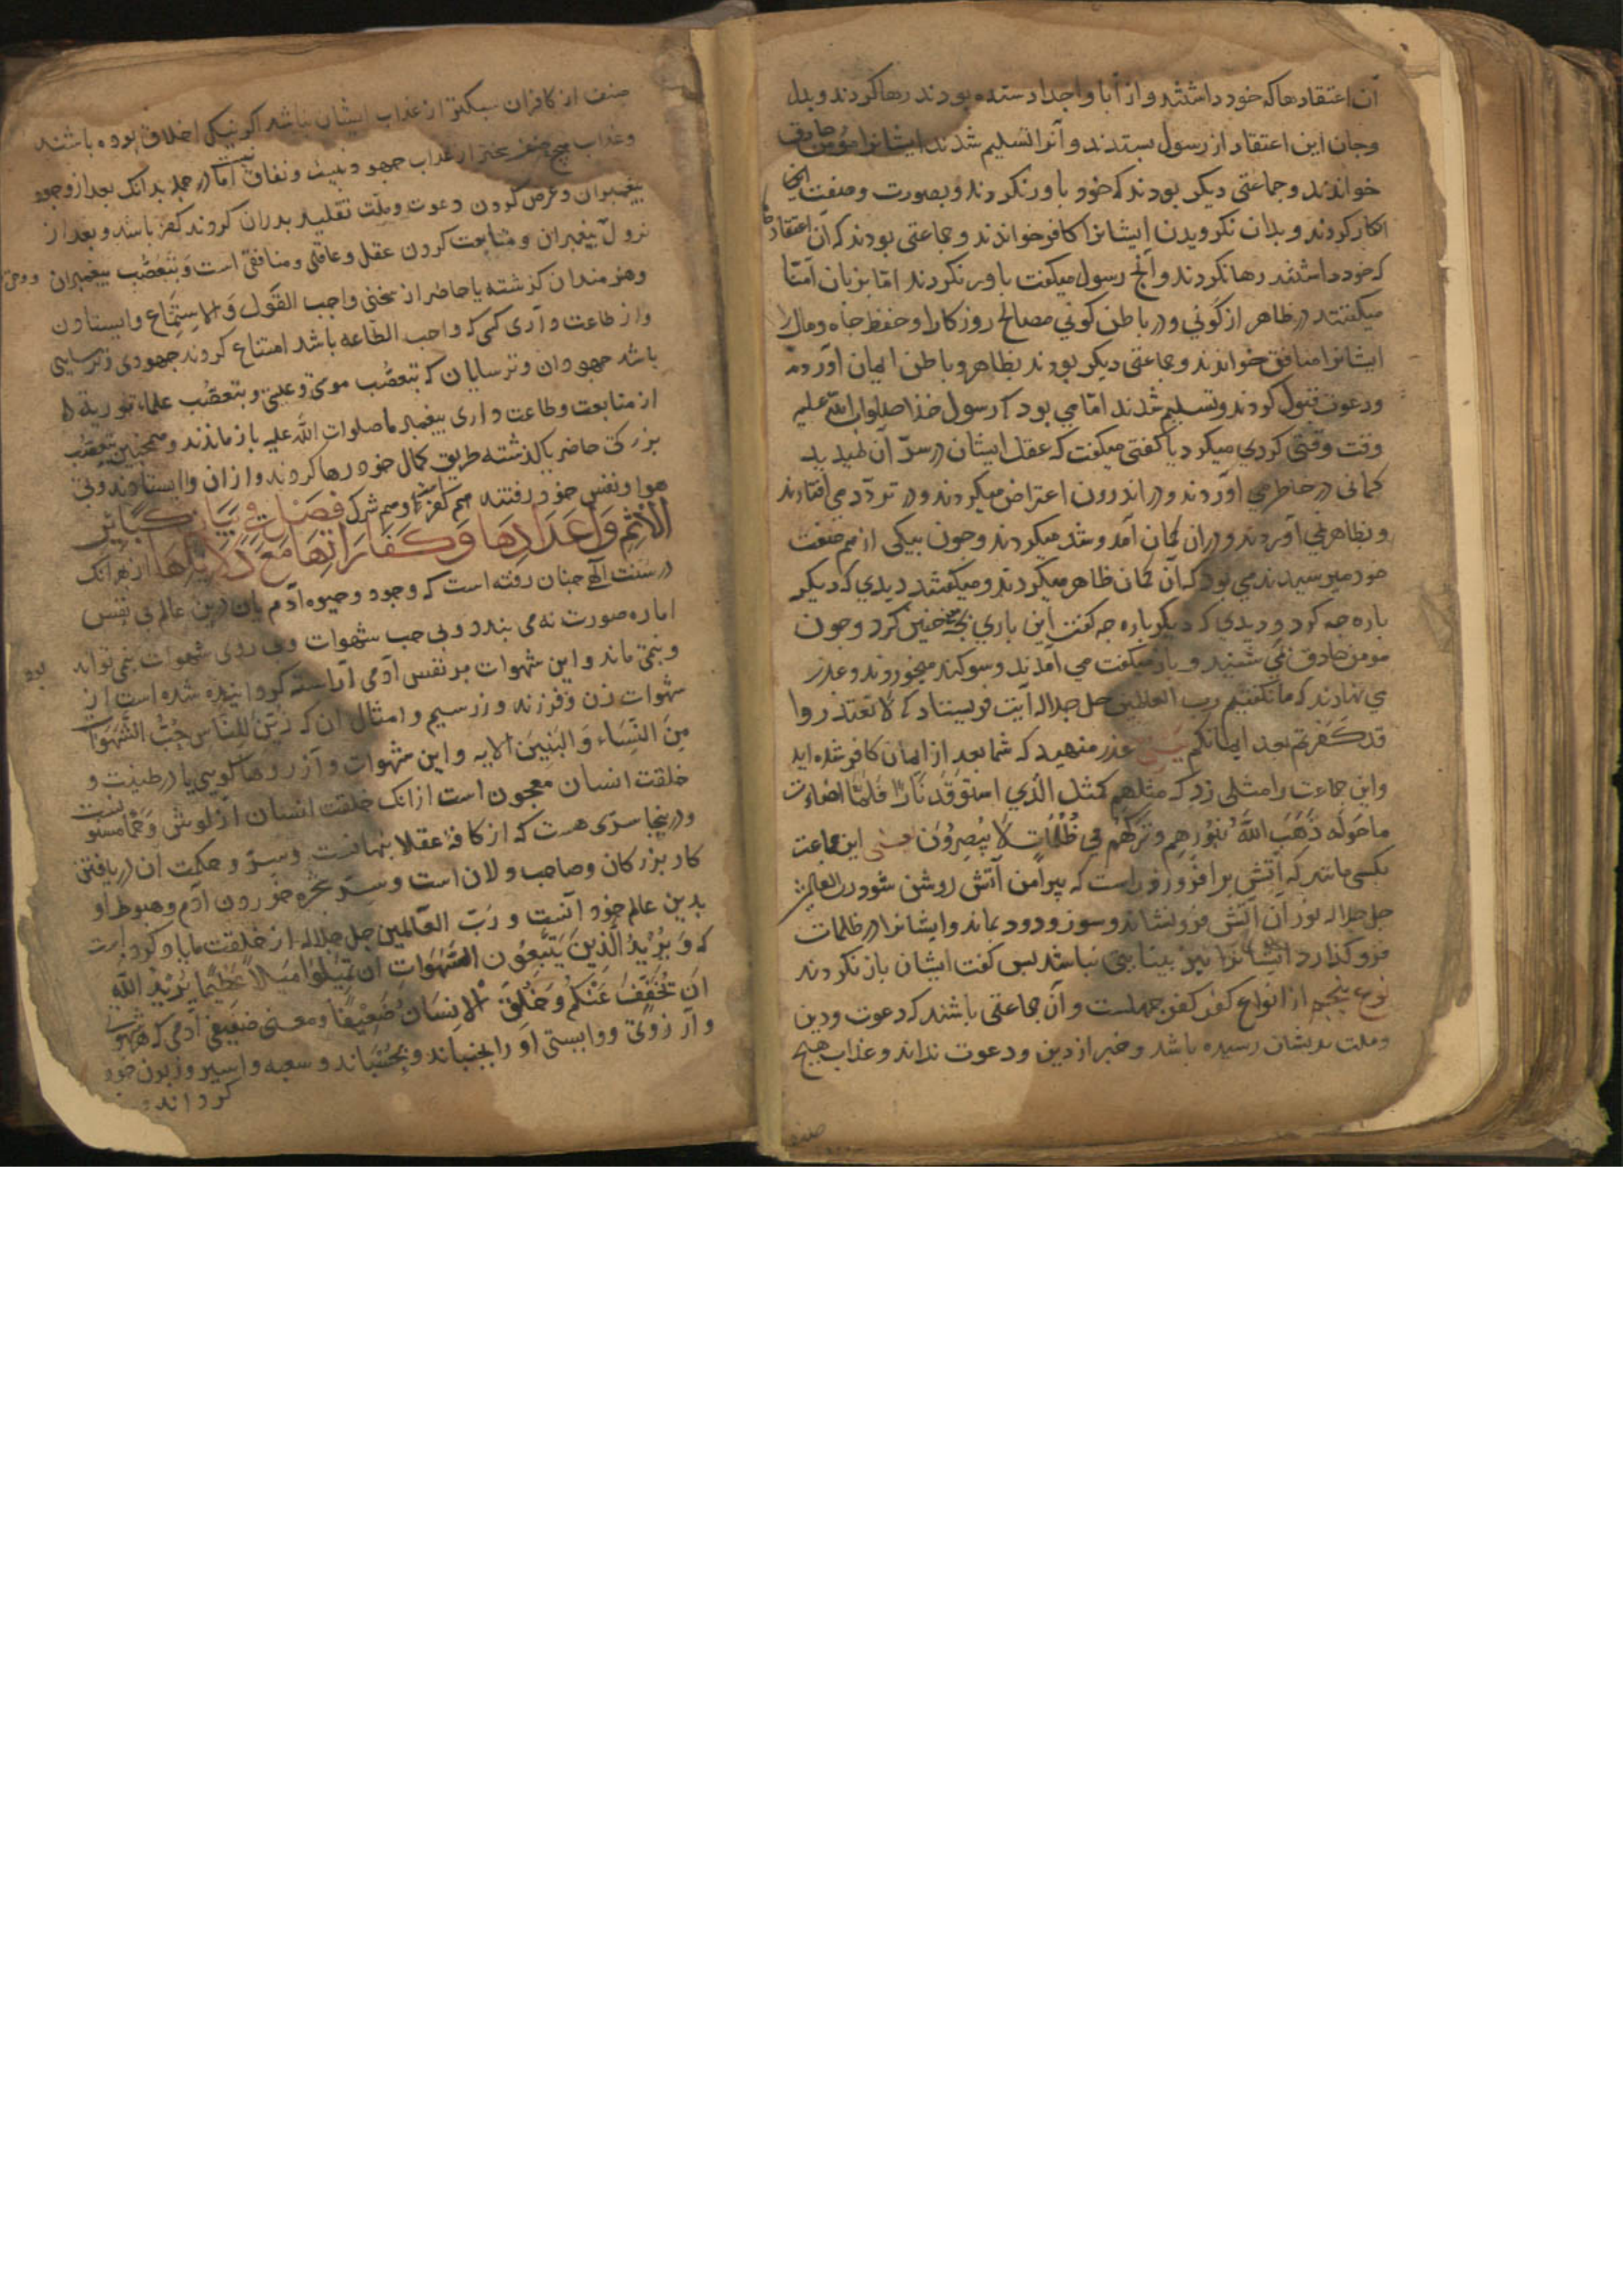 آن اعتقادها که خود داشتند و از آبا و اجداد ستده بودند رها کردند و بدل
و جان این اعتقاد از رسول بستدند و آنرا تسلیم شدند ایشانرا مؤمن صادق
خواندند و جماعتی دیکر بودند که خود باور نکردند و بصورت و صفت
انکار کردند و بدان نکرویدن ایشانرا کافر خواندند و جماعتی بودند که آن اعتقاد
که خود داشتند رها نکردند و آنج رسول میکفت باور نکردند اما بزبان آمنا
میکفتند در ظاهر از کونی و در باطن کونی مصالح روزکار را و حفظ جاه و مال را
ایشانرا منافق خواندند و جماعتی دیکر بودند بظاهر و باطن ایمان آوردند
و دعوت قبول کردند و تسلیم شدند اما می بود که رسول خدا صلوات الله علیه
وقت وقتی کردی میکرد یا کفتی میکفت که عقل ایشان در سر آن
کمانی در خاطر می آوردند و در اندرون اعتراض میکردند و در تردد می افتادند
و بظاهر نمی آوردند و در آن کمان آمد و شد میکردند و چون بیکی از هم صفت
خود میرسیدند می بود که آن کمان ظاهر میکردند و میکفتند دیدی که دیکر
باره چه کرد و دیدی که دیکر باره چه کفت این باری چنین کرد و چون
مومن صادق می شنید و باز میکفت می آمدند و سوکند میخوردند و عذر
می نهادند که ما نکفتیم رب العالمین جل جلاله آیت فرستاد که لا تعتذروا
قد کفرتم بعد ایمانکم یعنی عذر منهید که شما بعد از ایمان کافر شده اید
و این جماعت را مثلی زد که مثلهم کمثل الذی استوقد نارا فلما اضاءت
ما حوله ذهب الله بنورهم و ترکهم فی ظلمات لا یبصرون یعنی این جماعت
بکسی ماند که آتش برافروزد راست که پیرامن آتش روشن شود رب العالمین
جل جلاله نور آن آتش فرونشاند و سوز و دود بماند و ایشانرا در ظلمات
فرو کذارد ایشانرا نیز بینایی نباشد پس کفت ایشان باز نکردند
نوع پنجم از انواع کفر کفر جهلست و آن جماعتی باشند که دعوت و دین
و ملت بدیشان رسیده باشد و خبر از دین و دعوت نداند و عذاب هیچ
صنف از کافران سبکتر از عذاب ایشان نباشد اکر نیکی اخلاق بوده باشند
و عذاب هیچ صنف سختر از عذاب جهود نیست و نفاق اما در جمله بدانک بعد از وجود
پیغمبران و عرض کردن دعوت و ملت تقلید پدران کردند کفر باشد و بعد از
نزول پیغمبران و متابعت کردن عقل و عاقلی و منافقی است و بتعصب پیغمبران
و هنرمندان کذشته یا حاضر از سخنی واجب القول و الاستماع وایستادن
و از طاعت داری کسی که واجب الطاعه باشد امتناع کردند جهودی و ترسایی
باشد جهودان و ترسایان که بتعصب موسی و عیسی و بتعصب علماء توریة
از متابعت و طاعت داری پیغمبر ما صلوات الله علیه باز ماندند و همچنین بتعصب
بزرکی حاضر یا کذشته طریق کمال خود رها کردند و از آن وا ایستادند و پی
هوا و نفس خود رفتند هم کفر است و هم شرک فصل فی بیان کبائر
الاثم و اعدادها و کفاراتها مع دلایلها از بهر انک
در سنت الهی چنان رفته است که وجود و حیوه آدم یان درین عالم بی نفس
اماره صورت نه می بندد و بی حب شهوات و بی روی شهوات نمی تواند بود
و نمی ماند و این شهوات بر نفس آدمی آراسته کردانیده شده است از
شهوات زن و فرزند و زر سیم و امثال آن که زین للناس حب الشهوات
من النساء و البنین الایه و این شهوات و آرزوها کویی یا در طینت و
خلقت انسان معجون است از انک خلقت انسان از لوش و حمأ مسنون
و درینجا سری هست که از کافۀ عقلا پنهانست و سر و حکمت آن دریافتن
کار بزرکان و صاحب دلان است و سر شجره خوردن آدم و هبوط او
بدین عالم خود آنست و رب العالمین جل جلاله از خلقت ما یاد کرد
که و یرید الذین یتبعون الشهوات ان تمیلوا میلا عظیما یرید الله
ان یخفف عنکم و خلق الانسان ضعیفا و معنی ضعیفی آدمی که شهوت
و آرزوی و وابستی او را بجنباند و بجنباند و سغبه و اسیر و زبون خود
کرداند